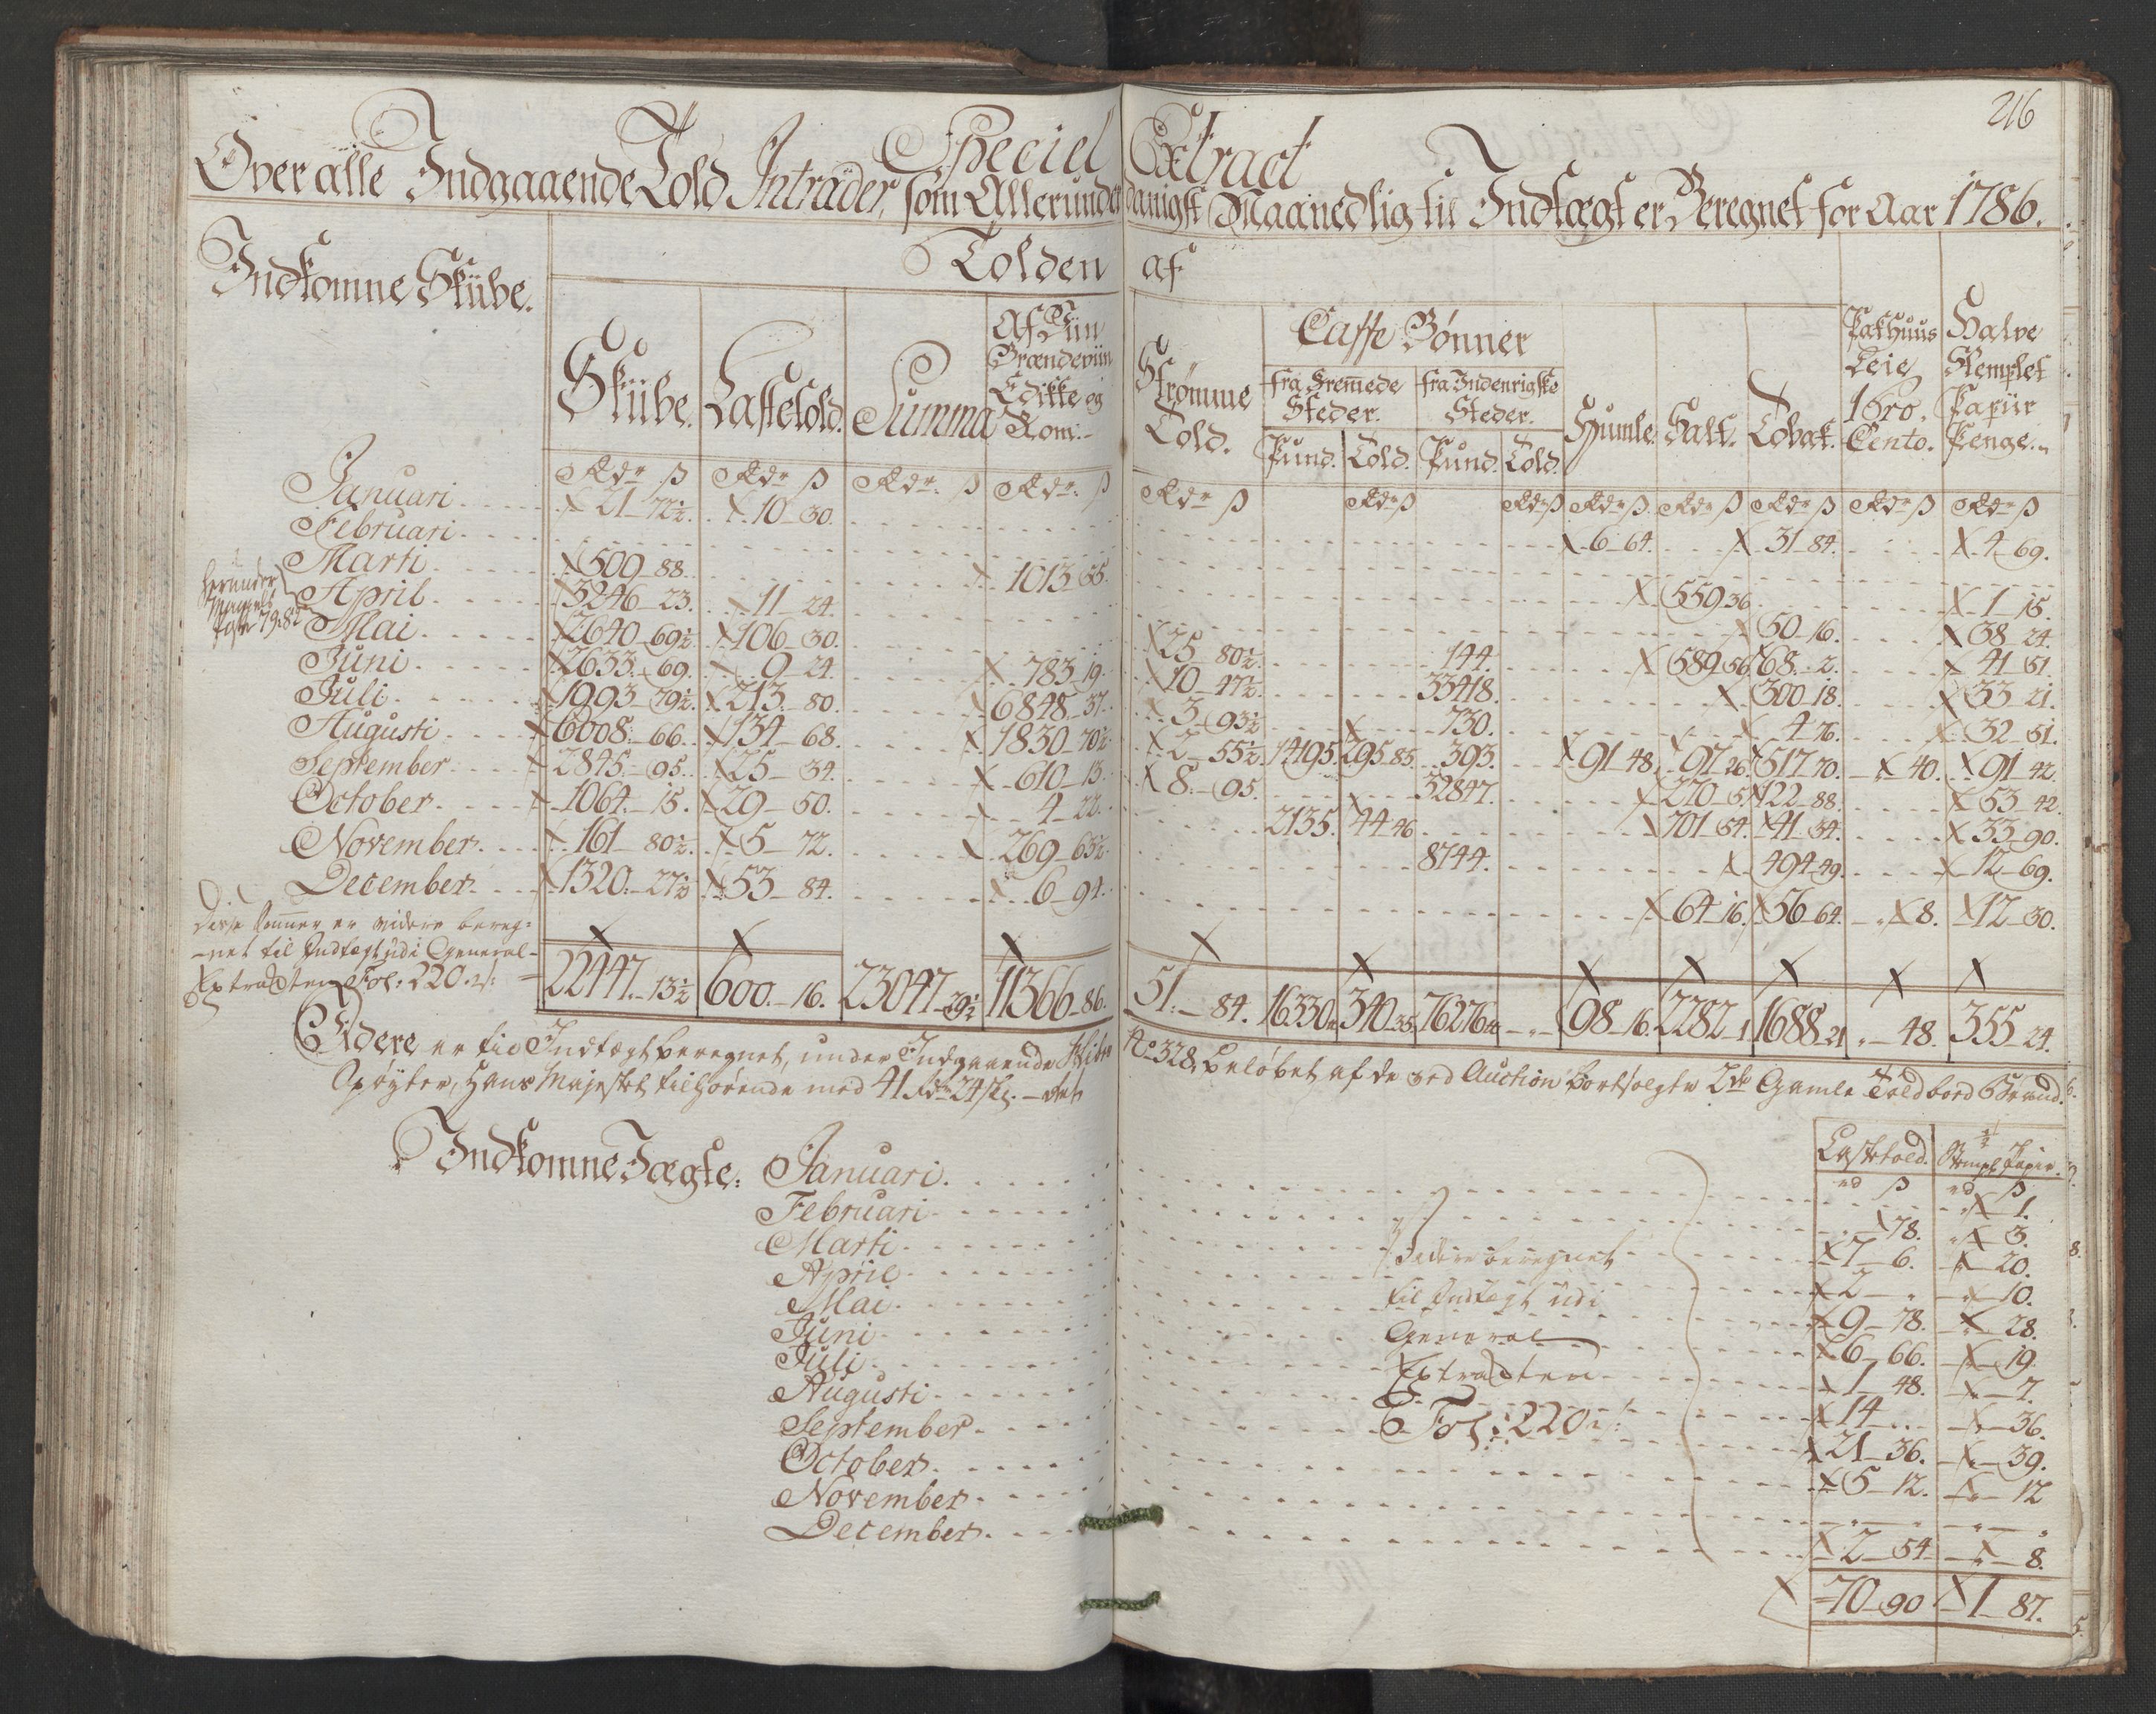 216
Speciel Extract
Over alle Indgaaende Told Intrader, som Allerunderdanigst Maanedlig til Indtægt er Beregnet for Aar 1786.
Indkomne Skibe.
Tolden af
Skibe. Lastetold. Summa Af Viin Brændeviin Edikke og Rom:
Strømme Told. Caffe Bønner fra Fremmede Steder. Pund. Told. fra Indenrigske Steder. Pund. Told. Humle. Salt. Tobak. Pakhuus Leie 1 Pro. Cento. Halve Stemplet Papiir Penge.
Rdr ß Rdr ß Rdr ß Rdr ß Rdr ß Rdr ß Rdr ß Rdr ß Rdr ß Rdr ß Rdr ß Rdr ß
Januari 21 72½. 10 30. 6 64. 31 84. 4 69.
Februari
Marti 509 88. 1013 55. 559 36. 1 15.
April 3246 23. 11 24. 50 16. 38 24.
Mai 2640 69½ 106 30. 25 80½. 144. 589 56 68 2. 41 51.
Juni 2633 69. 9 24. 783 19. 10 47½. 33418. 300 18. 33 21.
Juli 1993 79½. 213 80. 6848 37. 3 93½ 730. 4 76. 32 51.
Augusti 6008 66. 134 68. 1830 70½ 2 55½ 14195. 295 85. 393. 91 48. 97 26. 517 70. 40. 91 42.
September 2845 95. 25 34. 610 13. 8 95. 32847. 270 5. 122 88. 53 42.
October 1064 15. 29 50. 4 22. 2135. 44 46. 701 54. 41 34. 33 90.
November 161 80½. 5 72. 269 63½ 8744. 494 49. 12 69.
December 1320 27½ 53 84. 6 94. 64 16. 56 64. 8. 12 30.
22447 13½ 600 16. 23047 29½ 11366 86. 51 84. 16330 340 35. 76276 98 16. 2282 1 1688 21 48. 355 24.
herunder
Disse Summer er videre bereg-
-net til Indtægt udi General-
Extracten Fol: 220.
Videre er til Indtægt beregnet, under Indgaaende No 328, Beløbet af de ved Auction bortsolgte 2de Gamle Toldbod
Hans Majestet tilhørende med 41 Rdr 24 ß.
Indkomne Jægte:
Lastetold. ½ Stempl. Papir.
rd ß rd ß
Januari. 1.
Februari 78. 3.
Marti 7 6. 20.
April 2 10.
Mai 9 78. 28.
Juni 6 66. 19.
Juli 1 48. 7.
Augusti 14 36.
September 21 36. 39.
October 5 12. 12
November
December 2 54 8.
70 90 1 87.
Videre beregnet
til Indtægt udi
General
Extracten
Fol: 220